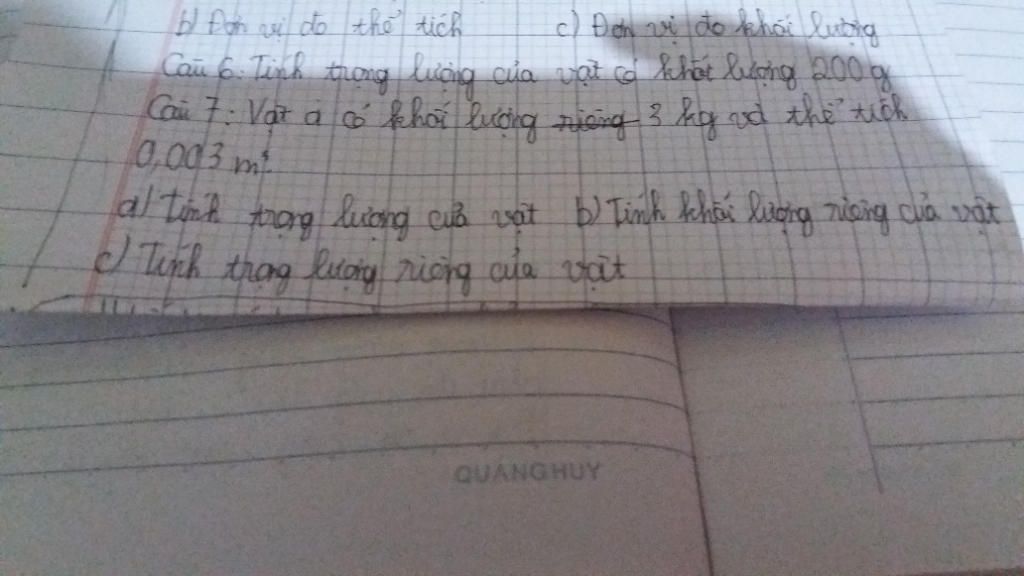 b) Đơn vị đo thể tích c) Đơn vị đo khối lượng
Câu 6: Tính trọng lượng của vật có khối lượng 200 g
Câu 7: Vật a có khối lượng riêng 3 kg và thể tích
0,003 m³
a) Tính trọng lượng của vật b) Tính khối lượng riêng của vật
c) Tính trọng lượng riêng của vật
QUANGHUY